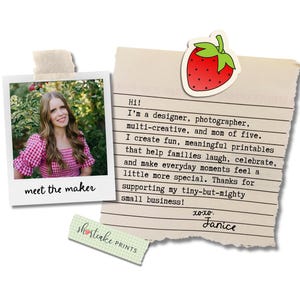 Hi!
I'm a designer, photographer,
multi-creative, and mom of five.
I create fun, meaningful printables
that help families laugh, celebrate,
and make everyday moments feel a
little more special. Thanks for
supporting my tiny-but-mighty
small business!
xoxo,
Janice
meet the maker
shortcake PRINTS